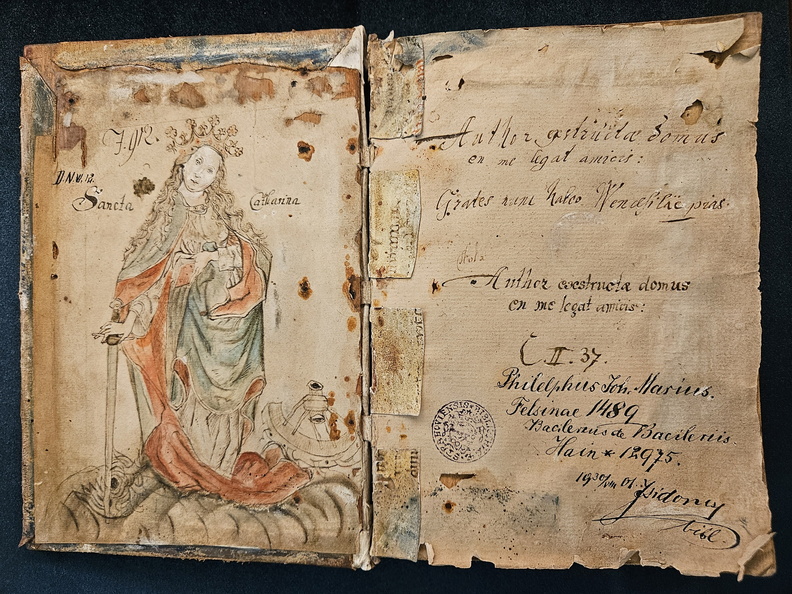 Sancta Catharina
Author exstructæ domus
en me legat amicis:
Grates nunc habeo Wenceslæ pias.
Author exstructæ domus
en me legat amicis:
C II. 37.
Philelphus Joh. Marius.
Felsinae 1489
Bacilerius de Bacileriis
Hain * 12975.
Isidorus
bibl